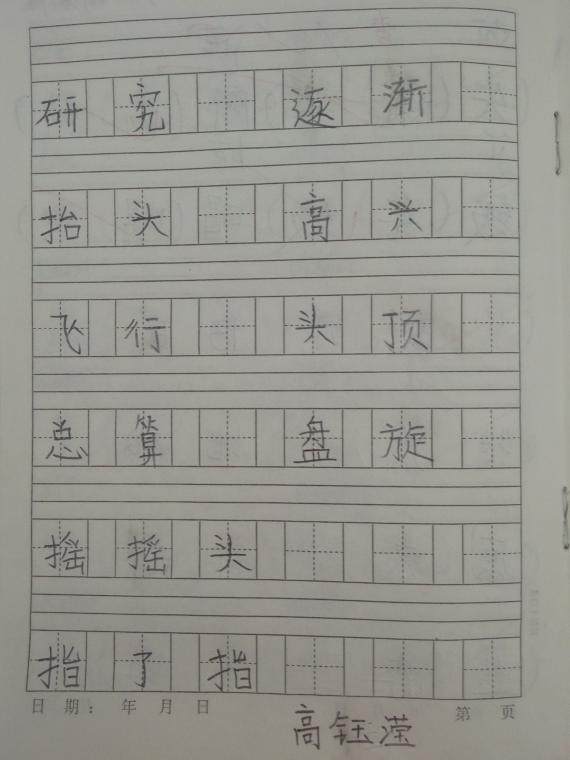 研究 逐渐
抬头 高兴
飞行 头顶
总算 盘旋
摇摇头
指了指
日 期： 年 月 日 第 页
高钰滢